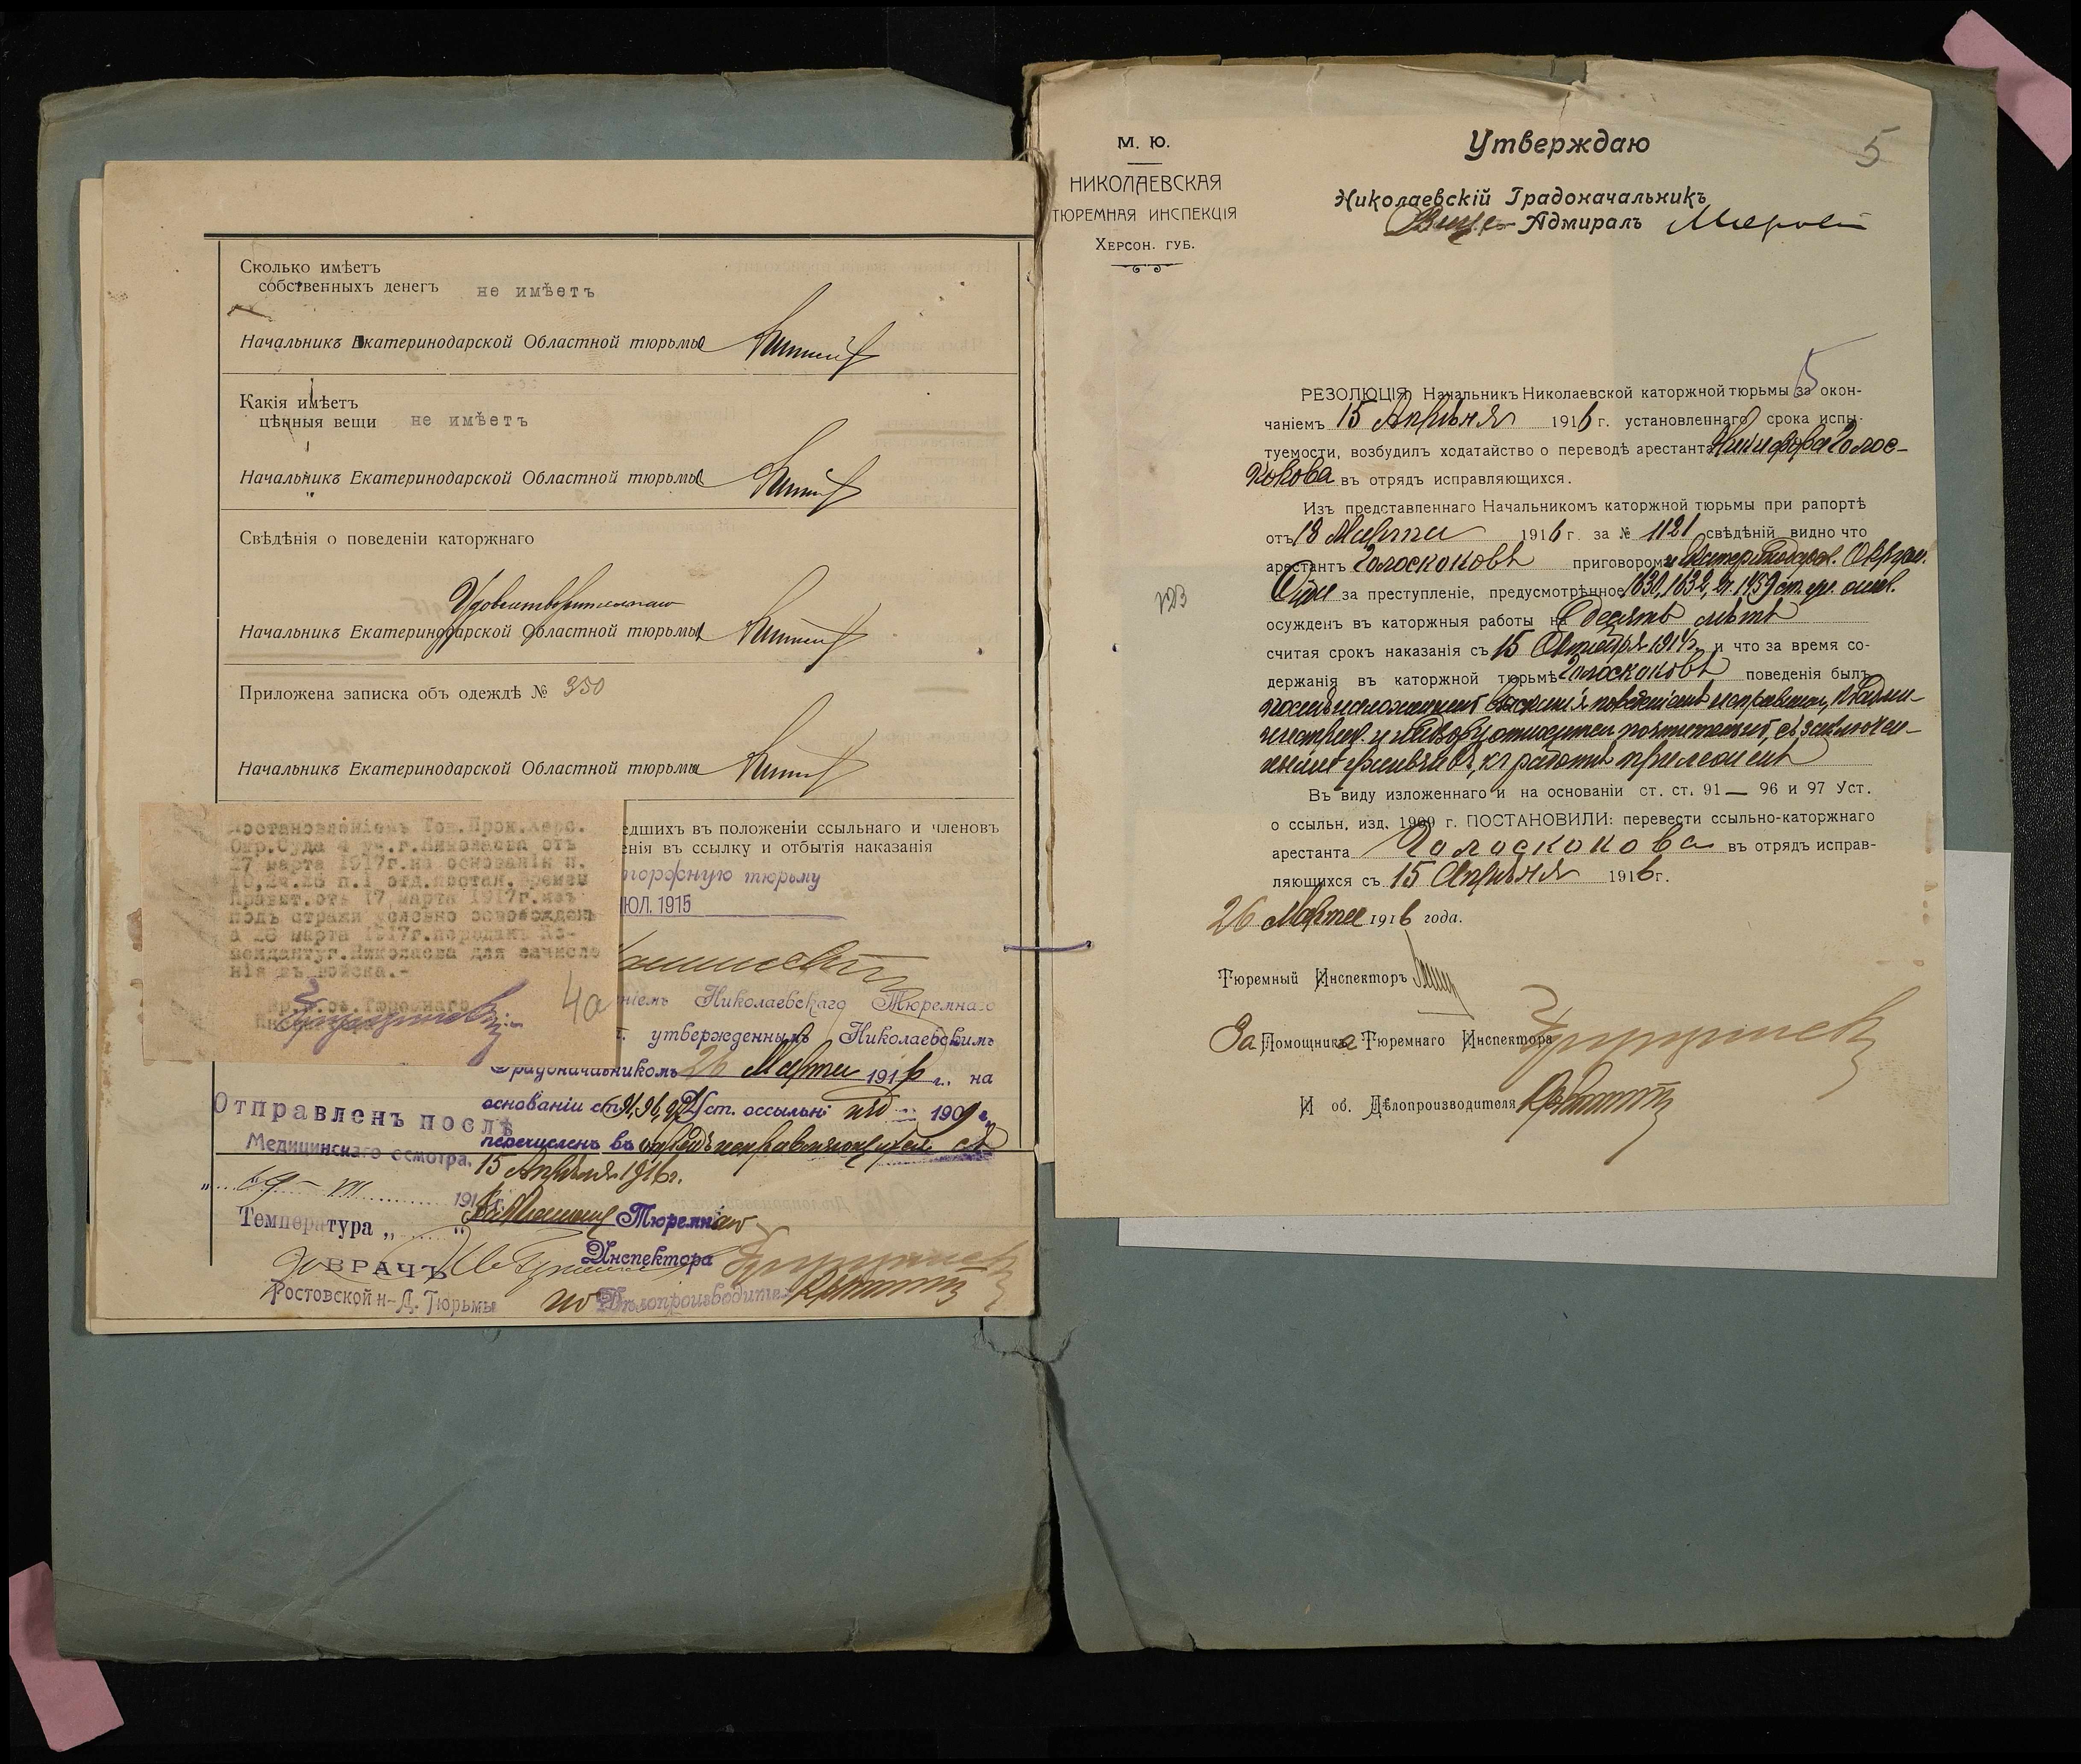 Сколько имѣетъ
собственныхъ денегъ не имѣетъ
Начальникъ Екатеринодарской Областной тюрьмы
Какія имѣетъ
цѣнныя вещи не имѣетъ
Начальникъ Екатеринодарской Областной тюрьмы
Свѣдѣнія о поведеніи каторжнаго
Удовлетворительнаго
Начальникъ Екатеринодарской Областной тюрьмы
Приложена записка объ одеждѣ № 350
Начальникъ Екатеринодарской Областной тюрьмы
едшихъ въ положеніи ссыльнаго и членовъ
енія въ ссылку и отбытія наказанія
торжную тюрьму
ЮЛ. 1915
Постановленіемъ Тов.Прок.Херс.
Окр.Суда 4 уч.г.Николаева отъ
27 марта 1917г.на основаніи п.
п.1 отд.постан.Времен
Правит.отъ 17 марта 1917г.изъ
подъ стражи условно освобожденъ
а 28 марта 1917г.переданъ Ко-
менданту г.Николаева для зачисле
нія въ войска.-
Вр. Тюремнаго
4а
ніемъ Николаевскаго Тюремнаго
г. утвержденнымъ Николаевскимъ
Градоначальникомъ 26 Марта 1916 г., на
основаніи ст. 91, 96, 97 Уст. о ссыльн. изд. 1909 г.
перечисленъ въ отрядъ исправляющихся съ
15 Апрѣля 1916г.
Отправленъ послѣ
Медицинскаго осмотра.
„ 19 - VII 191
Температура „ „
ВРАЧЪ
Ростовской н-Д. Тюрьмы
Тюремнаго
Инспектора
Дѣлопроизводителя
М. Ю.
НИКОЛАЕВСКАЯ
ТЮРЕМНАЯ ИНСПЕКЦІЯ
ХЕРСОН. ГУБ.
Утверждаю
5
Николаевскій Градоначальникъ
Вице-Адмиралъ
5
РЕЗОЛЮЦІЯ: Начальникъ Николаевской каторжной тюрьмы за окон-
чаніемъ 15 Апрѣля 1916 г. установленнаго срока испы-
туемости, возбудилъ ходатайство о переводѣ арестанта Никифора Голос-
кокова въ отрядъ исправляющихся.
Изъ представленнаго Начальникомъ каторжной тюрьмы при рапортѣ
отъ 18 Марта 1916 г. за № 1121 свѣдѣній видно что
арестантъ Голоскоковъ приговоромъ Екатеринодар. Окруж.
Суда за преступленіе, предусмотрѣнное 1630, 1632, 2 ч. 1459 ст. ул. о нак.
осужденъ въ каторжныя работы на десять лѣтъ
считая срокъ наказанія съ 15 Октября 1914 г. и что за время со-
держанія въ каторжной тюрьмѣ Голоскоковъ поведенія былъ
къ работѣ прилеженъ
Въ виду изложеннаго и на основаніи ст. ст. 91 — 96 и 97 Уст.
о ссыльн. изд. 1909 г. ПОСТАНОВИЛИ: перевести ссыльно-каторжнаго
арестанта Голоскокова въ отрядъ исправ-
ляющихся съ 15 Апрѣля 1916 г.
26 Марта 1916 года.
Тюремный Инспекторъ
За Помощника Тюремнаго Инспектора
И об. Дѣлопроизводителя